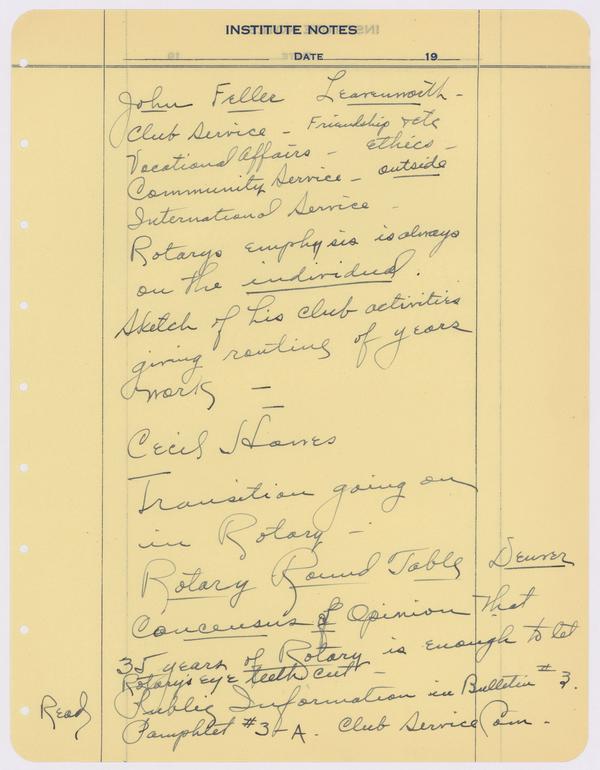 INSTITUTE NOTES
DATE 19
John Feller Leavenworth -
Club Service - Friendship &etc
Vocational Affairs - Ethics -
Community Service - outside
International Service -
Rotarys emphysis is always
on the individual.
Sketch of his club activities
giving routine of years
work -
Cecil Howes
Transition going on
in Rotary -
Rotary Round Table Denver
Concensus of Opinion that
35 years of Rotary is enough to let
Rotarys eye teeth cut -
Public Information in Bulletin #3.
Read Pamphlet #3-A. Club Service Com -